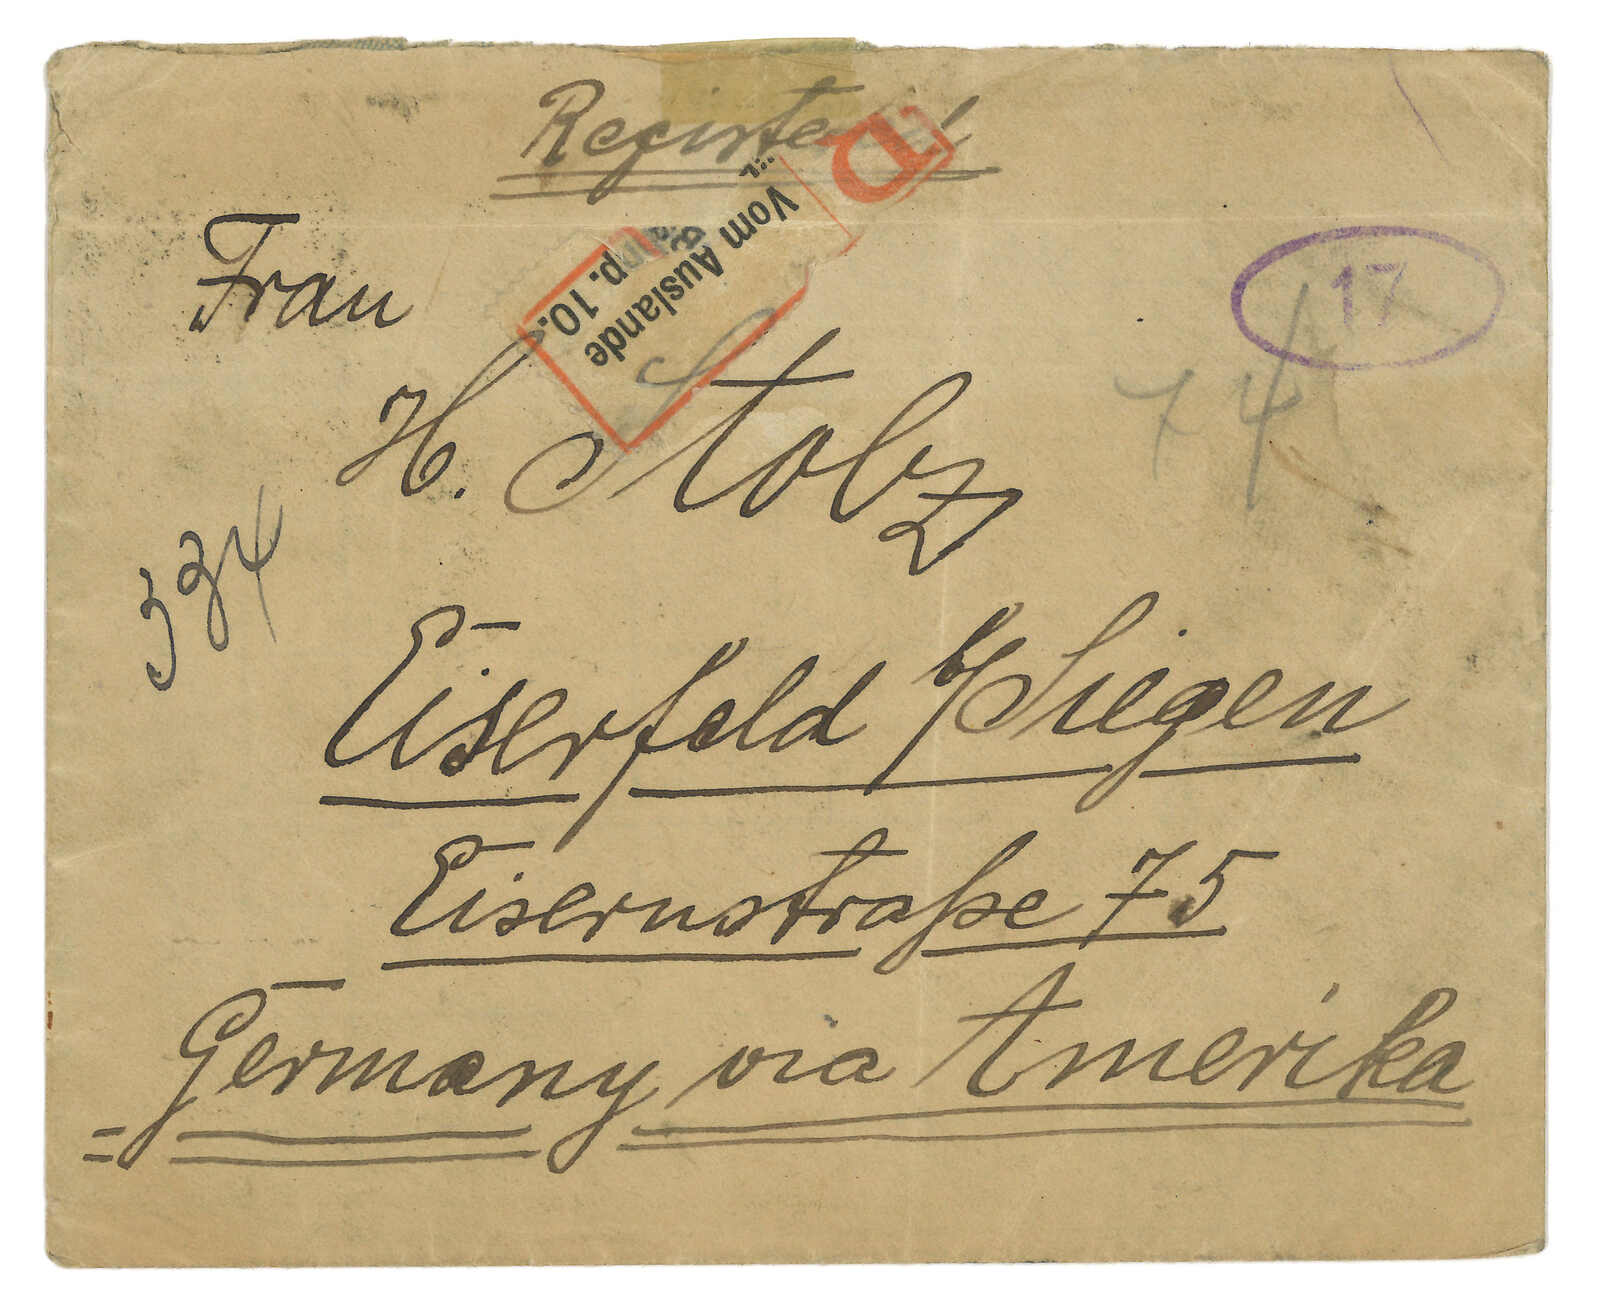 Registered
Frau
R
Vom Auslande
Kupp. 10.
17
74
H. Stolz
534
Eiserfeld b/Siegen
Eisernstraße 75
Germany via Amerika